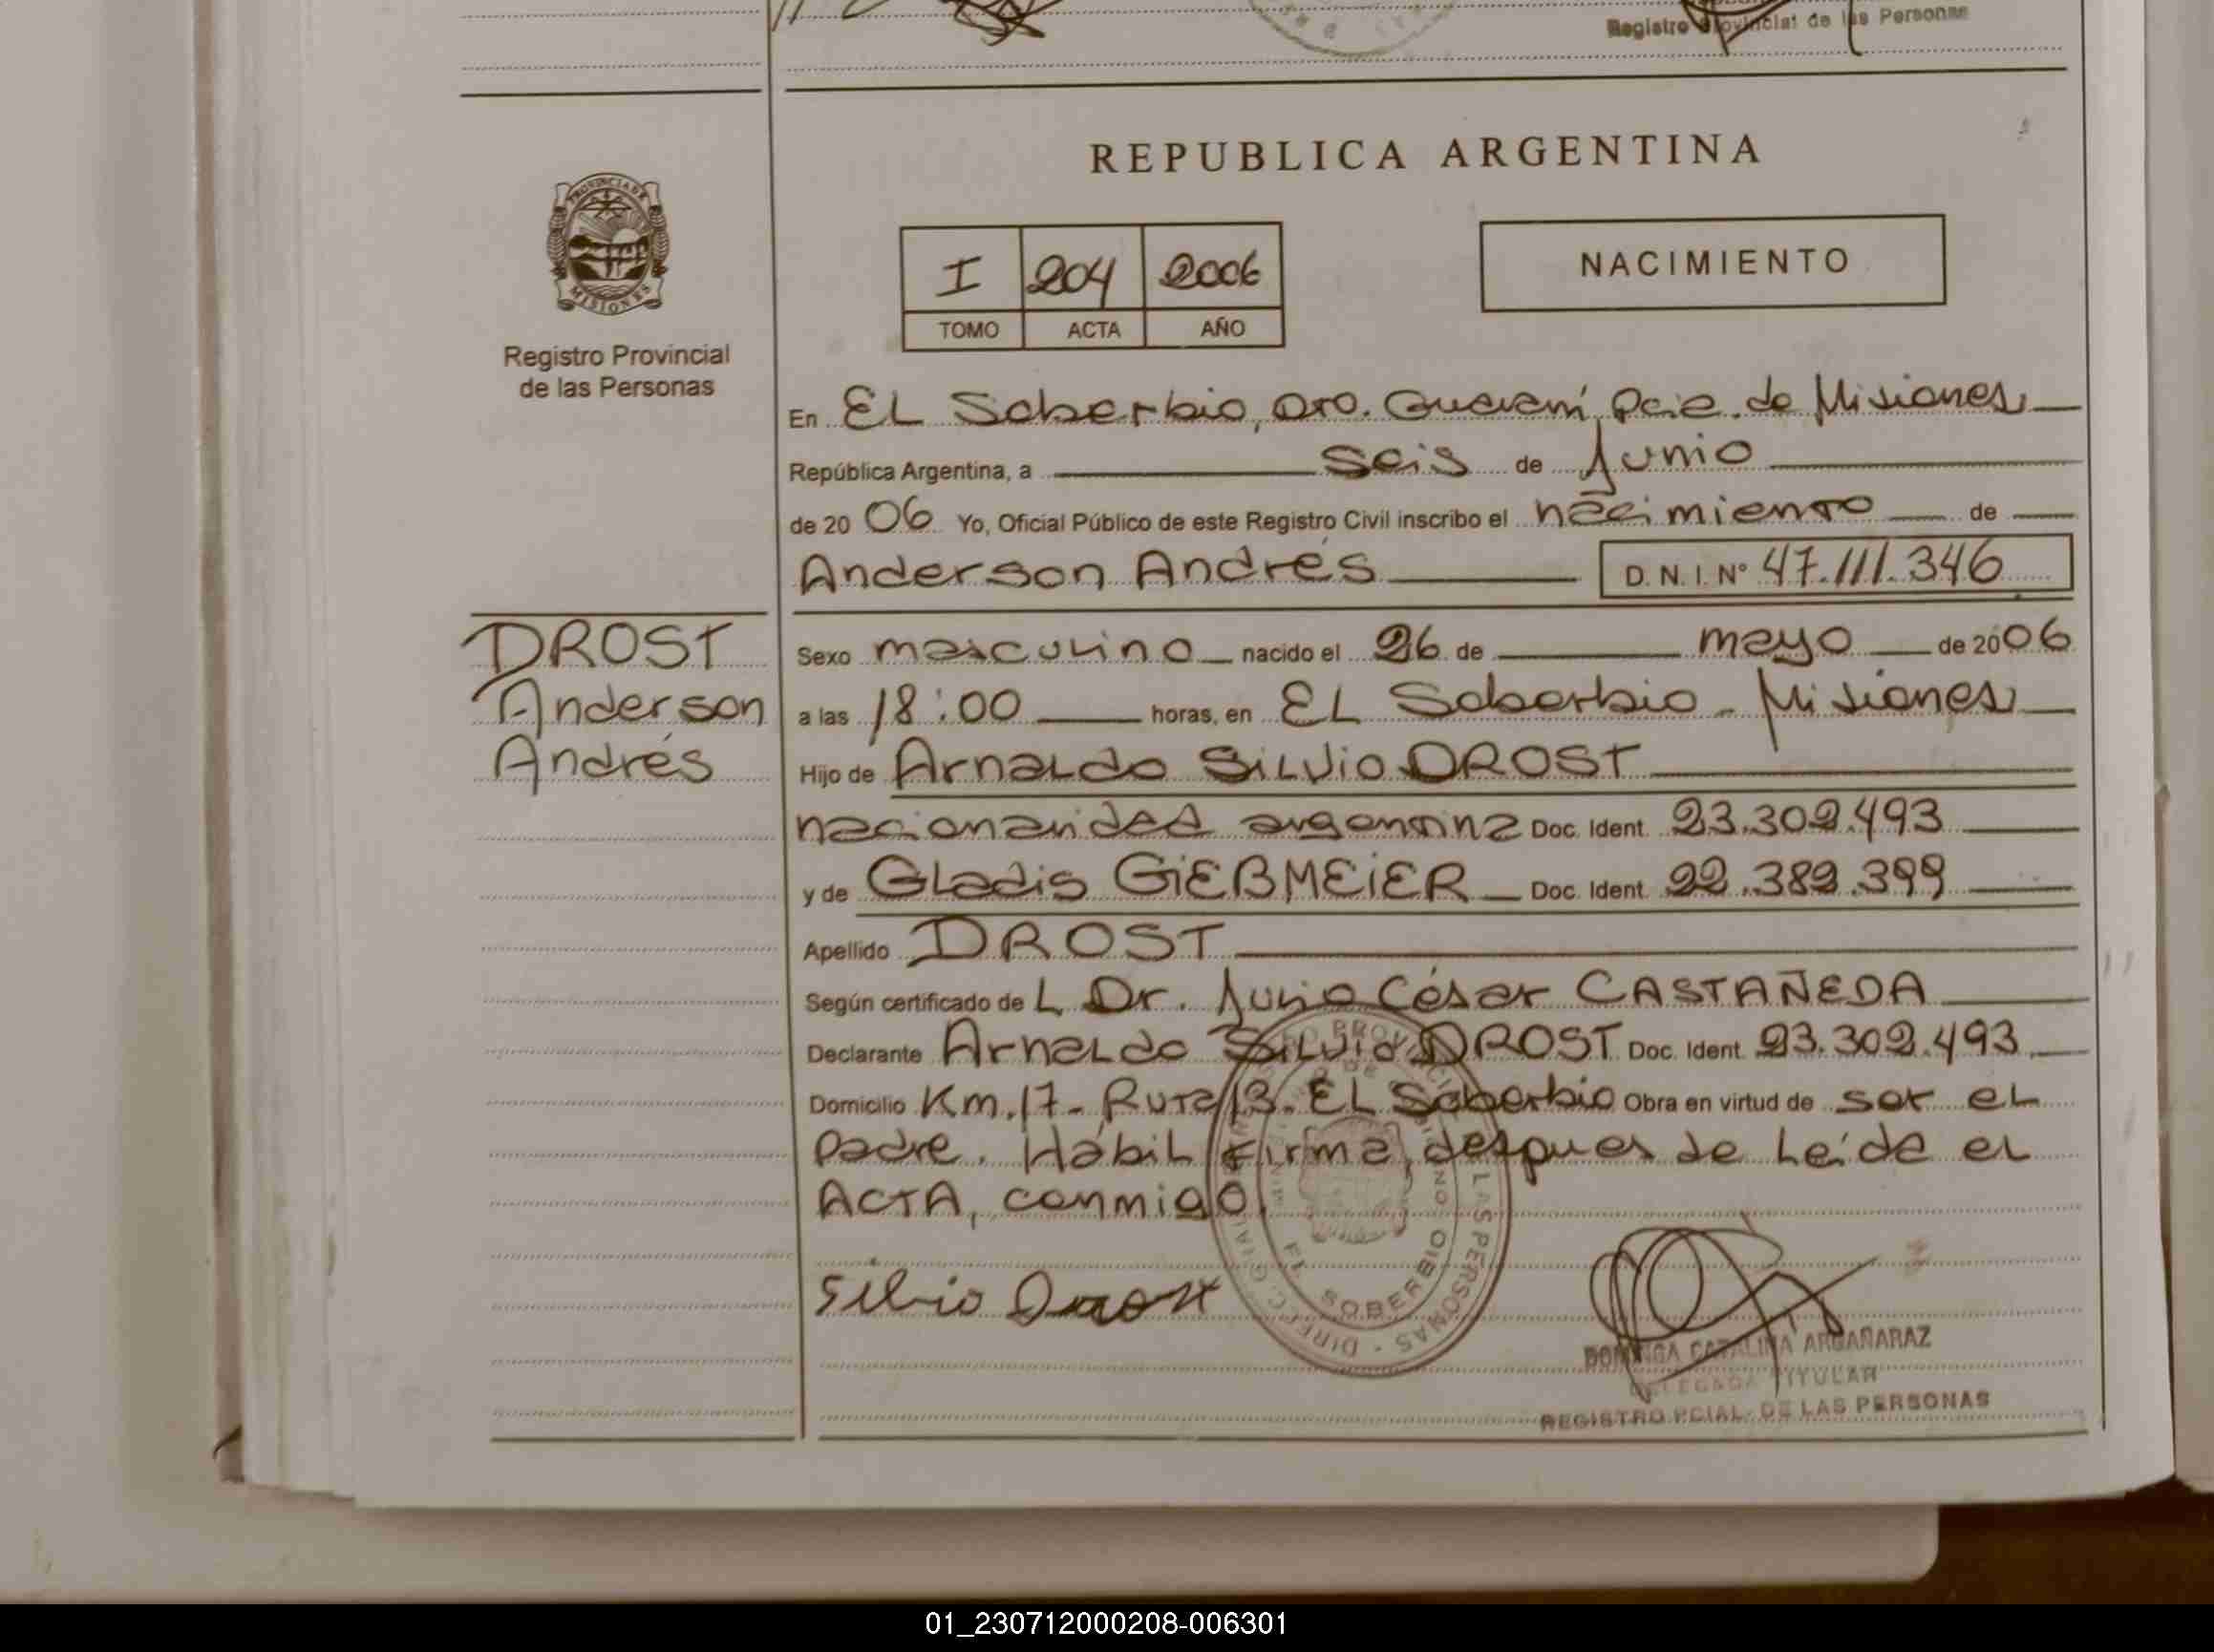 Registro Provincial de las Personas
REPUBLICA ARGENTINA
PROVINCIA DE
MISIONES
Registro Provincial
de las Personas
I 204 2006
TOMO ACTA AÑO
NACIMIENTO
En EL Soberbio, Dto. Guaraní, Pcia. de Misiones
República Argentina, a seis de Junio
de 2006 Yo, Oficial Público de este Registro Civil inscribo el nacimiento de
Anderson Andrés D.N.I. Nº 47.111.346
DROST
Anderson
Andrés
Sexo masculino nacido el 26 de mayo de 2006
a las 18:00 horas, en EL Soberbio - Misiones
Hijo de Arnaldo Silvio DROST
nacionalidad argentina Doc. Ident. 23.302.493
y de Gladis GiEBMEiER Doc. Ident. 22.382.399
Apellido DROST
Según certificado de L Dr. Julio César CASTAÑEDA
Declarante Arnaldo Silvio DROST Doc. Ident. 23.302.493
Domicilio Km. 17 - Ruta 13 - EL Soberbio Obra en virtud de ser el
padre. Hábil firma, despues de Leída el
ACTA, conmigo.
Silvio Drost
EL SOBERBIO
LAS PERSONAS
DOMINGA CATALINA ARGAÑARAZ
DELEGADA TITULAR
REGISTRO PCIAL. DE LAS PERSONAS
01_230712000208-006301